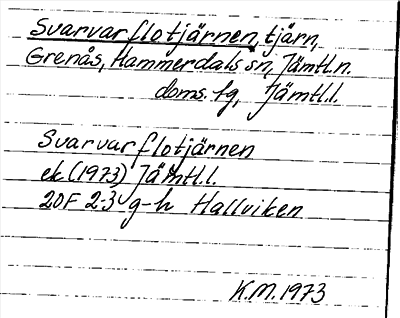 Svarvarflotjärnen, tjärn,
Grenås, Hammerdals sn, Jämtl.n.
doms.fg, Jämtl.l.
Svarvarflotjärnen
ek (1973) Jämtl.l.
20F 2-3 g-h Hallviken
K.M. 1973